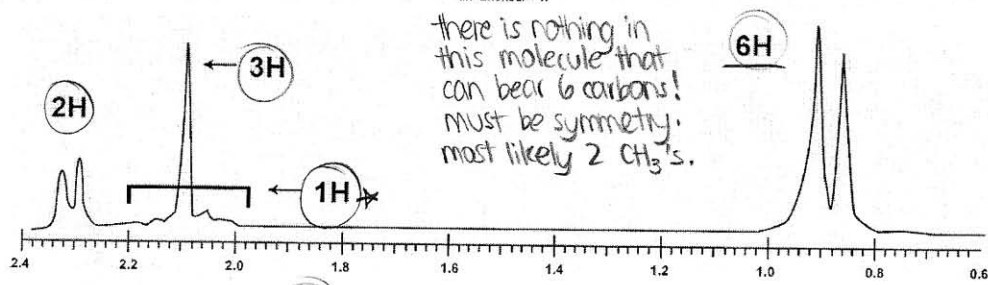 there is nothing in
this molecule that
can bear 6 carbons!
must be symmetry.
most likely 2 CH₃'s.
6H
3H
2H
1H
2.4 2.2 2.0 1.8 1.6 1.4 1.2 1.0 0.8 0.6